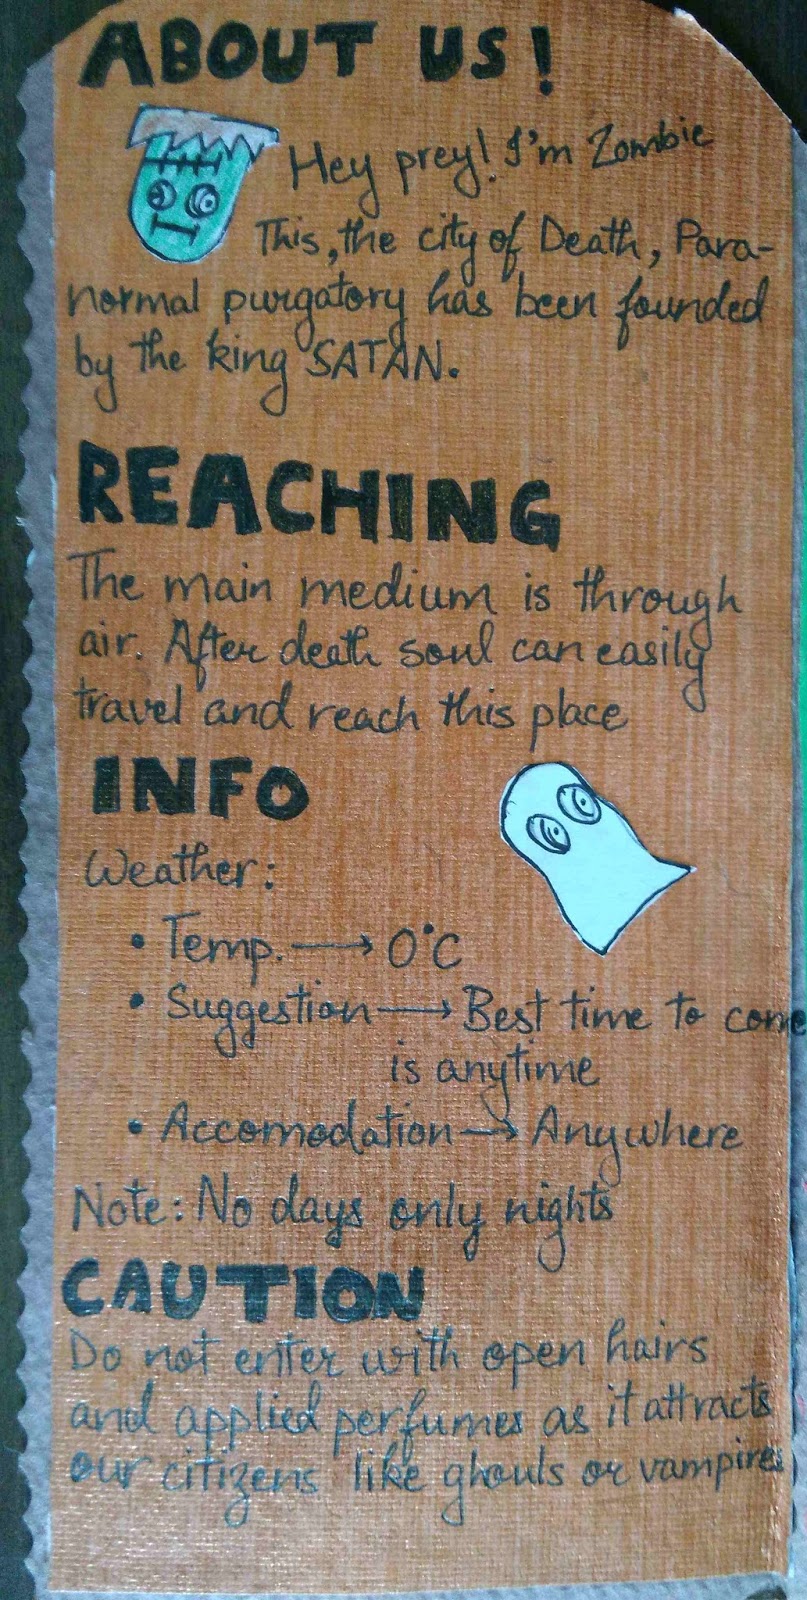 ABOUT US!
Hey prey! I'm Zombie
This, the city of Death, Para-
normal purgatory has been founded
by the king SATAN.
REACHING
The main medium is through
air. After death soul can easily
travel and reach this place
INFO
Weather:
• Temp. → 0°C
• Suggestion → Best time to come
is anytime
• Accomodation → Anywhere
Note: No days only nights
CAUTION
Do not enter with open hairs
and applied perfumes as it attracts
our citizens like ghouls or vampires